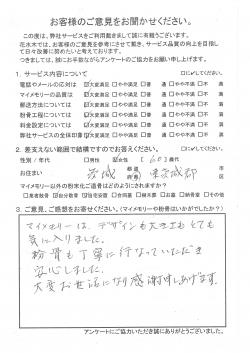 お客様のご意見をお聞かせください。
この度は、弊社サービスをご利用戴きまして誠に有難うございます。
花水木では、お客様のご意見を参考にさせて戴き、サービス品質の向上を目指して日々改善に努めたいと考えております。
つきましては、誠にお手数ながらアンケートのご協力をお願い申し上げます。
1. サービス内容について
電話やメールの応対は ☑大変満足 □やや満足 □普 通 □やや不満 □不 満
マイメモリーの品質は ☑大変満足 □やや満足 □普 通 □やや不満 □不 満
郵送方法について ☑大変満足 □やや満足 □普 通 □やや不満 □不 満
粉骨工程について ☑大変満足 □やや満足 □普 通 □やや不満 □不 満
料金設定について ☑大変満足 □やや満足 □普 通 □やや不満 □不 満
弊社サービスの全体印象 ☑大変満足 □やや満足 □普 通 □やや不満 □不 満
2. 差支えない範囲で結構ですのでお答えください。
性別/年代 □男性 ☑女性 (60)歳代
お住まい 茨城
マイメモリー以外の粉末化ご遺骨はどのようにされますか?
3. ご意見、ご感想をお寄せください。(マイメモリーや粉骨はいかがでしたか?)
マイメモリーは、デザインも大きさもとても
気に入りました。
粉骨も丁寧に行なっていただき
安心しました。
大変お世話になり感謝申しあげます。
アンケートにご協力いただき誠にありがとうございました。